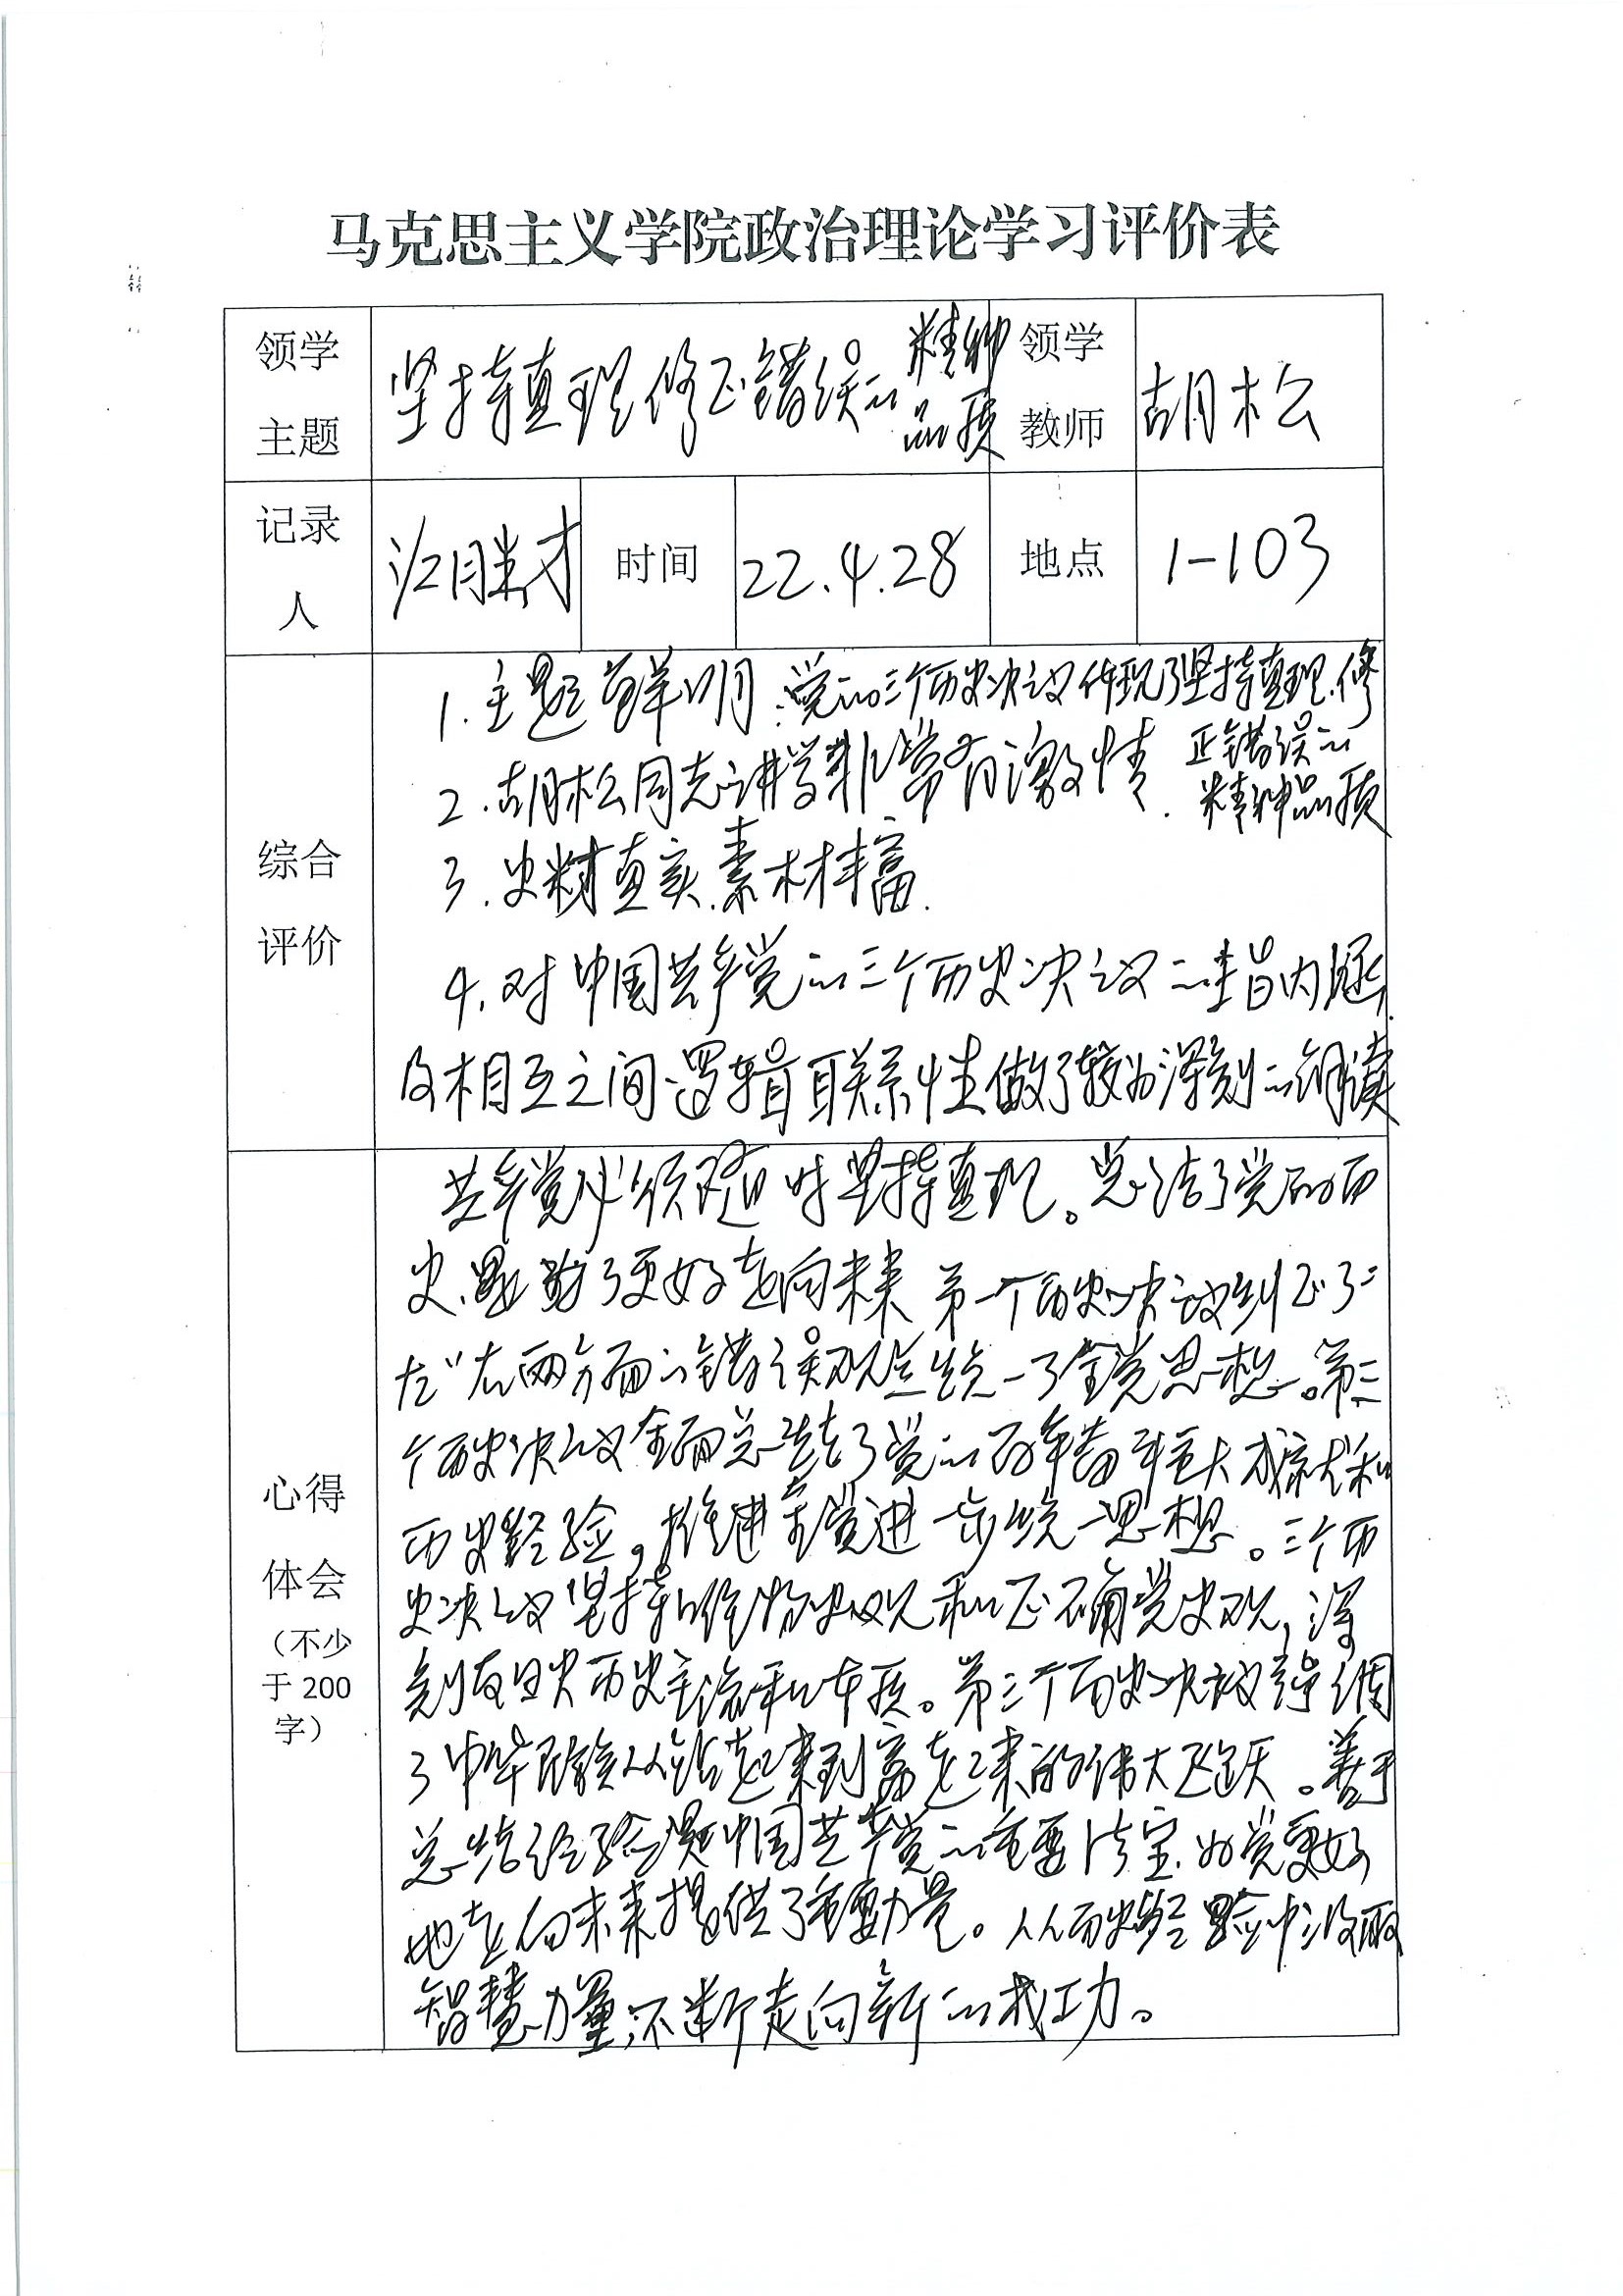 马克思主义学院政治理论学习评价表
领学主题
坚持真理修正错误的精神品质
领学教师
胡松
记录人
江胜才
时间
22.4.28
地点
1-103
综合评价
1.主题鲜明:党的三个历史决议体现了坚持真理.修
正错误的
精神品质
2.胡松同志讲学非常有激情.
3.史料真实.素材丰富.
4.对中国共产党的三个历史决议的丰富内涵
及相互之间逻辑联系性做了较为深刻的解读
心得体会
(不少于200字)
共产党必须随时坚持真理。总结了党的历
史、是为了更好走向未来 第一个历史决议纠正了
"左"右两方面的错误观点统一了全党思想。第三
个历史决议全面总结了党的百年奋斗重大成就和
历史经验。推进全党进一步统一思想。三个历
史决议坚持唯物史观和正确党史观,深
刻 历史主流和本质。第三个历史决议强调
了中华民族从站起来到富起来的伟大飞跃。善于
总结经验是中国共产党的重要法宝.为党更好
地走向未来提供了重要力量。从历史经验中汲取
智慧力量,不断走向新的成功。